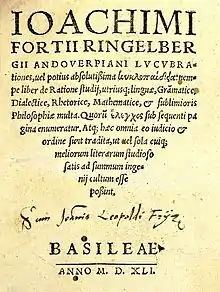 IOACHIMI
FORTII RINGELBER
GII ANDOVERPIANI LVCVBRA-
tiones, uel potius absolutissima κυκλοπαιδεία: nempe
liber de Ratione studij, utriusq; linguæ, Grãmatice,
Dialectice, Rhetorice, Mathematice, & sublimioris
Philosophiæ multa. Quorũ ἔλεγχος sub sequenti pa
gina enumeratur. Atq; hæc omnia eo iudicio &
ordine sunt tradita, ut uel sola cuiq;
meliorum literarum studioso
satis ad summum inge-
nij cultum esse
possint.
Sum Johannis Leopoldi
BASILEAE
ANNO M. D. XLI.